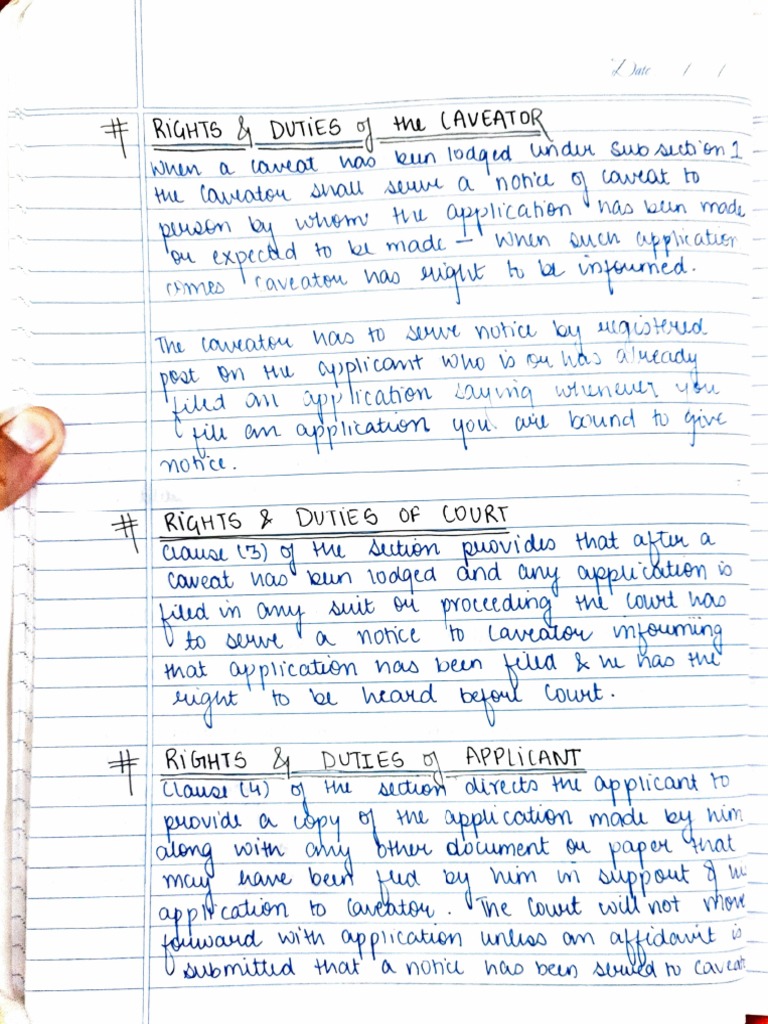 Date / /
# RIGHTS & DUTIES of the CAVEATOR
When a caveat has been lodged under subsection 1
the caveator shall serve a notice of caveat to
person by whom the application has been made
or expected to be made - when such application
comes caveator has right to be informed.
The caveator has to serve notice by registered
post on the applicant who is or has already
filed an application saying whenever you
file an application you are bound to give
notice.
# RIGHTS & DUTIES OF COURT
Clause (3) of the section provides that after a
caveat has been lodged and any application is
filed in any suit or proceeding the court has
to serve a notice to caveator informing
that application has been filed & he has the
right to be heard before court.
# RIGHTS & DUTIES of APPLICANT
Clause (4) of the section directs the applicant to
provide a copy of the application made by him
along with any other document or paper that
may have been fued by him in support of
application to caveator. The Court will not move
forward with application unless an affidavit is
submitted that a notice has been served to caveat